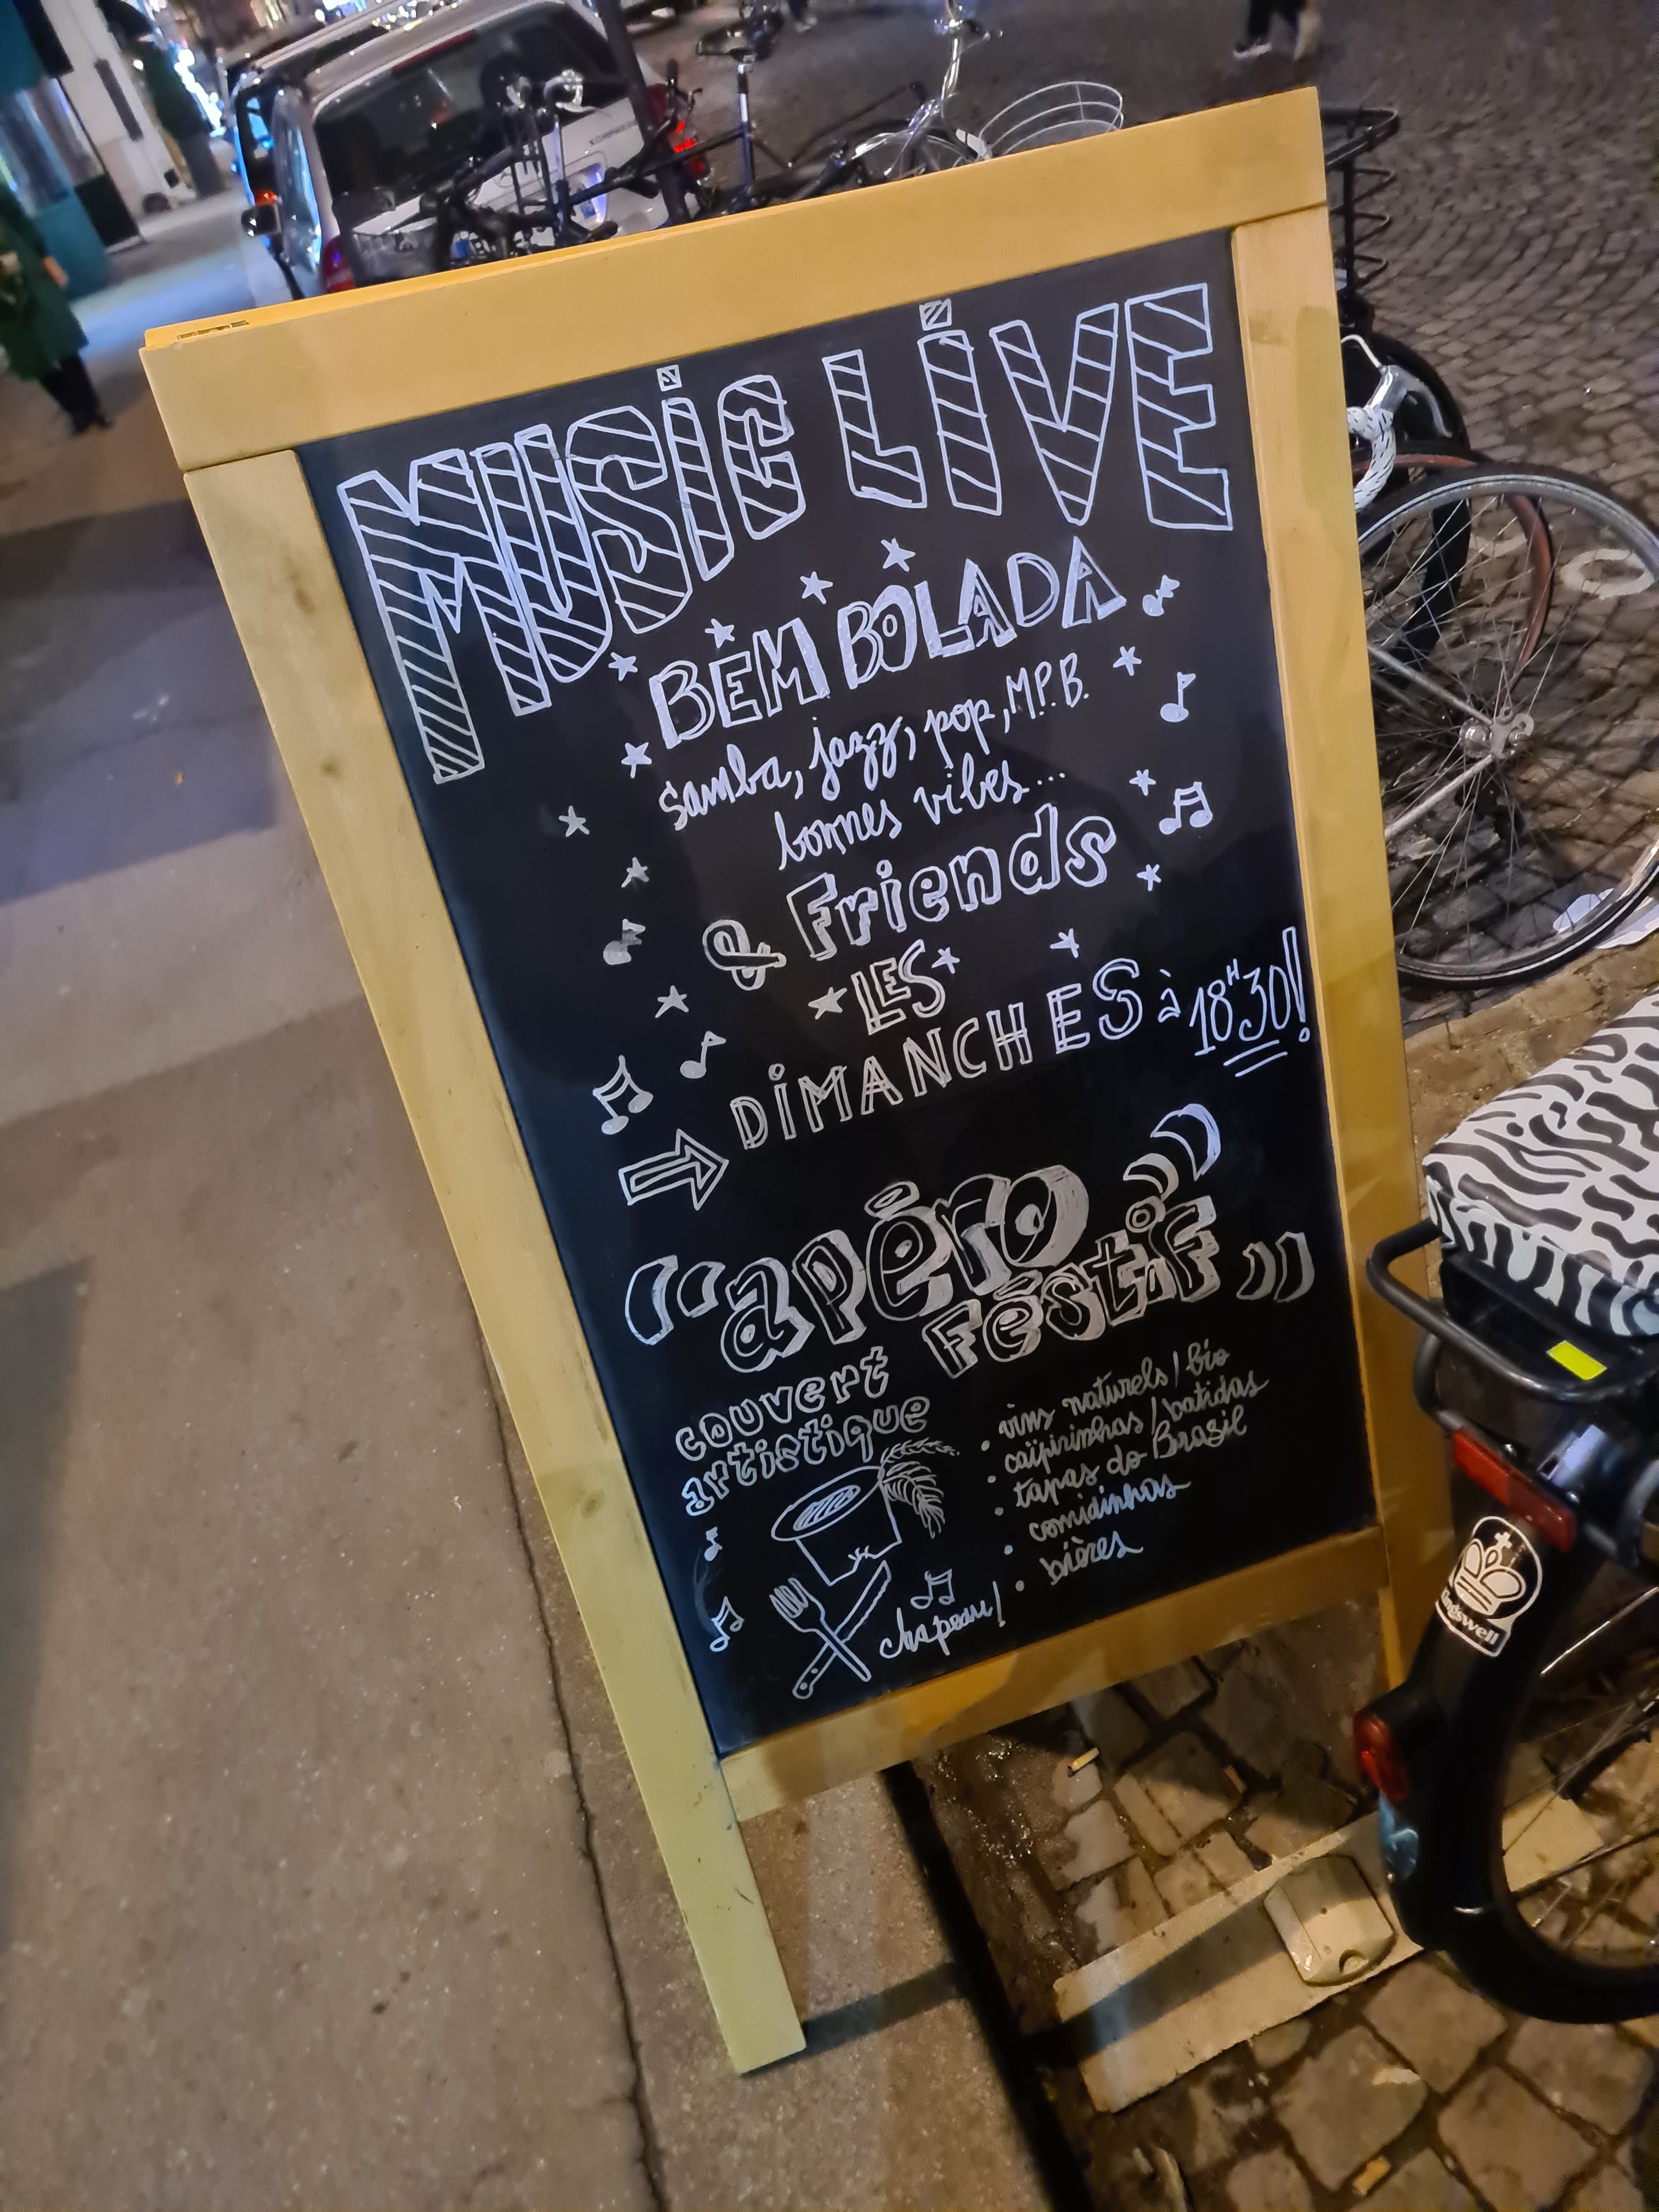 MUSIC LIVE
BEM BOLADA
samba, jazz, pop, M.P.B.
bonnes vibes...
& Friends
LES
DIMANCHES à 18H30!
"apéro
Féstif"
couvert
artistique
• vins naturels / bio
• caïpirinhas / batidas
• tapas do Brasil
• comidinhas
• bières
chapeau!
Kingswell